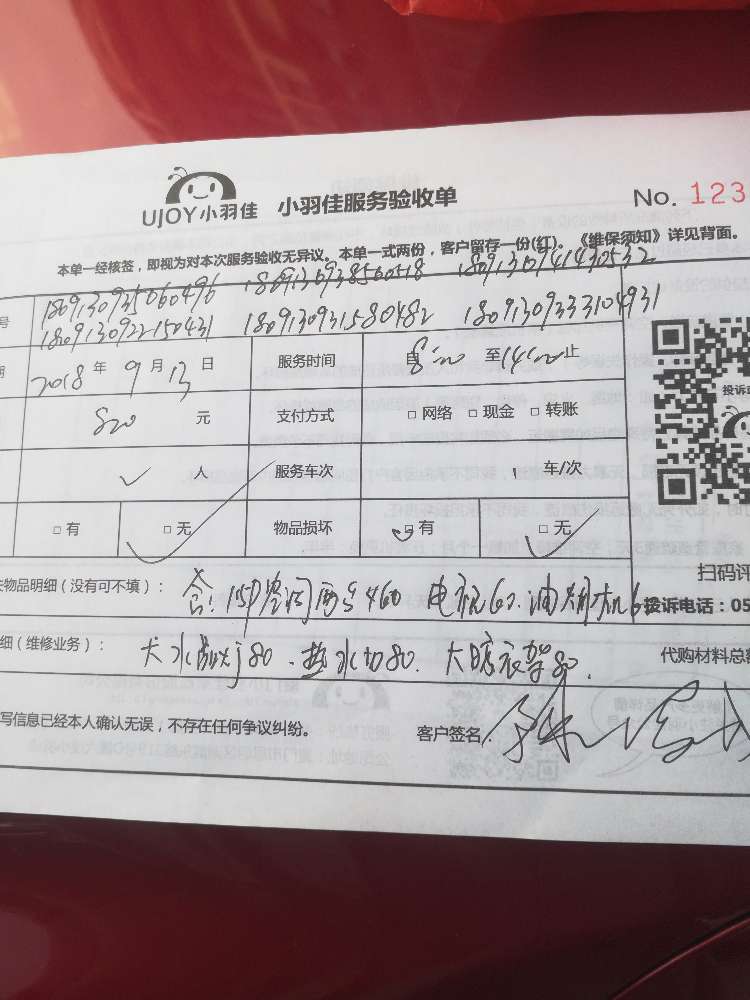 UJOY小羽佳 小羽佳服务验收单 No. 123
本单一经核签，即视为对本次服务验收无异议。本单一式两份，客户留存一份(红)。《维保须知》详见背面。
号 1809130935060496 1809130938560518 1809130941430532
1809130922150431 1809130931580482 18091309333104931
期 2018 年 9 月 13 日 服务时间 自 8:00 至 14:00 止
820 元 支付方式 □ 网络 □ 现金 □ 转账
人 服务车次 1 车/次
□ 有 □ 无 物品损坏 □ 有 □ 无
物品明细（没有可不填）： 含:
460 电视60.油烟机6
投诉电话：05
扫码评
细（维修业务）： 大水 80. 热水 80. 大晾衣架80.
代购材料总额
写信息已经本人确认无误，不存在任何争议纠纷。 客户签名：